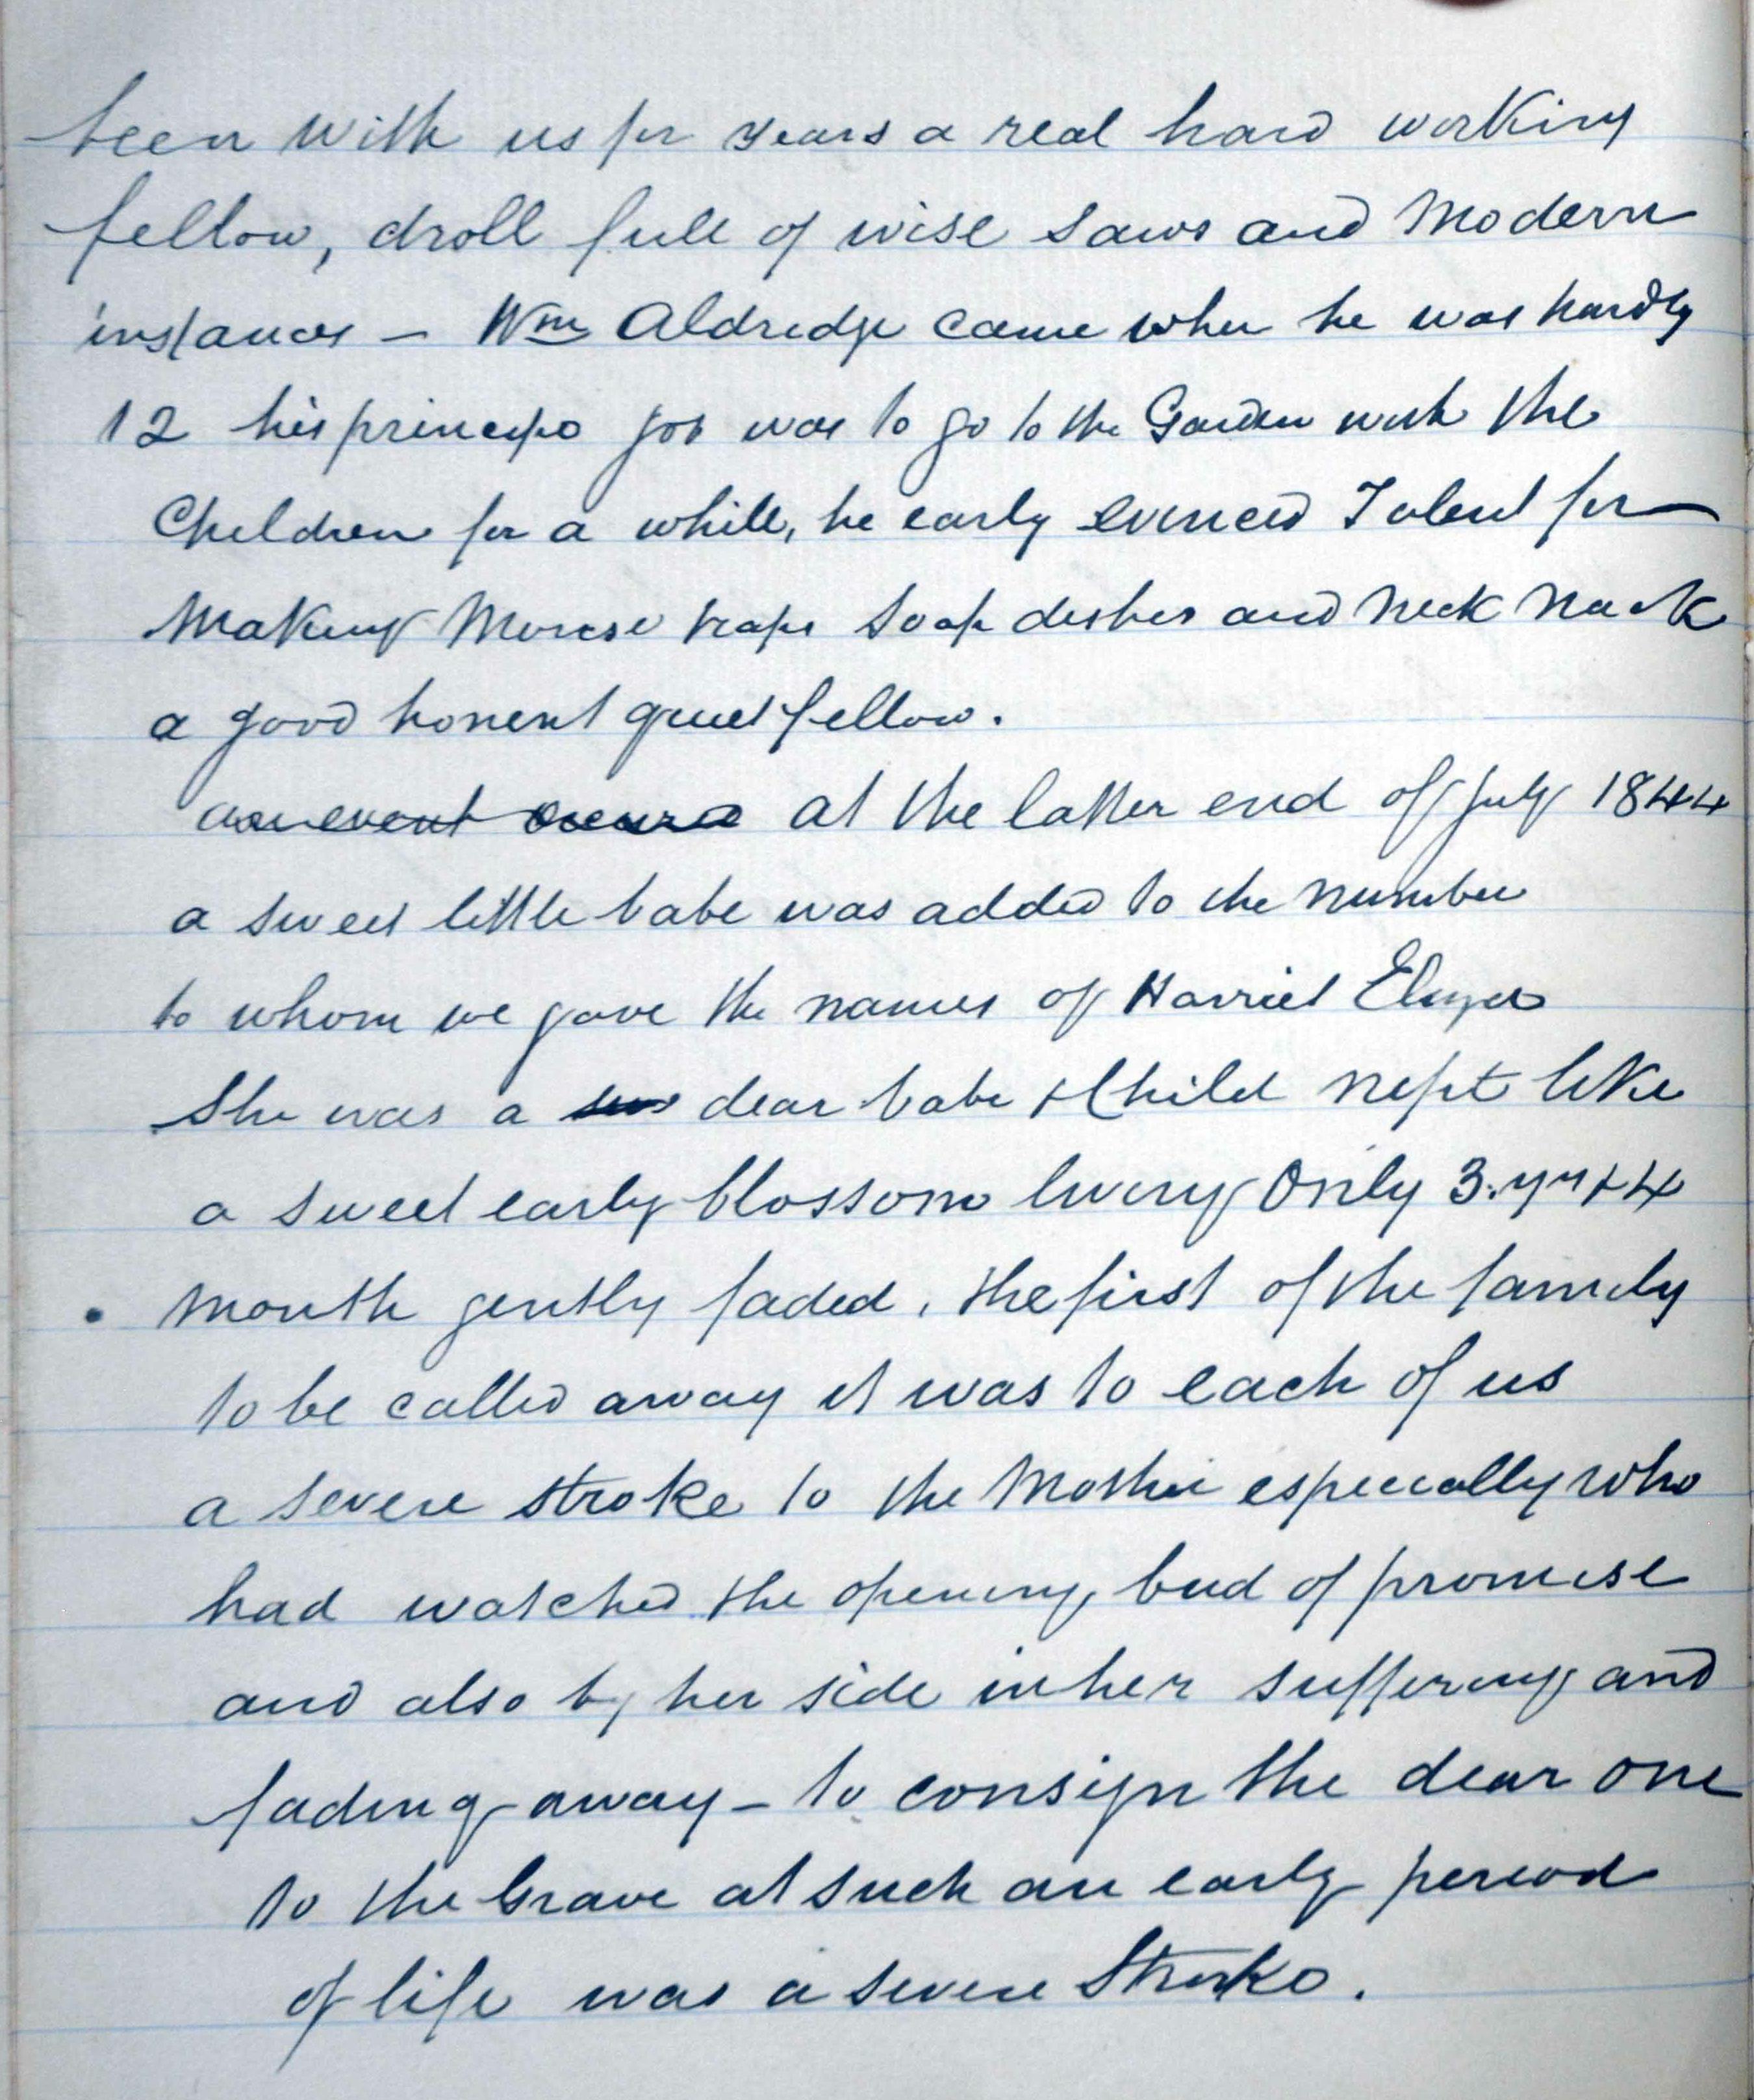 been with us for years a real hard working
fellow, droll full of wise saws and Modern
instances – Wm Aldredge came when he was hardly
12 his job was to go to the Garden with the
Children for a while, he early evinced Talent for
Making Mouse traps Soap dishes and Nick Nack
a good honest quiet fellow.
an event occurd at the latter end of July 1844
a sweet little babe was added to the number
to whom we gave the names of Harriet
She was a swe dear babe & Child nipt like
a sweet early blossom living Only 3. yrs & 4
month gently faded, the first of the family
to be called away it was to each of us
a severe stroke to the Mother especially who
had watched the opening bud of promise
and also by her side in her suffering and
fading away – to consign the dear one
to the Grave at such an early period
of life was a severe Stroke.